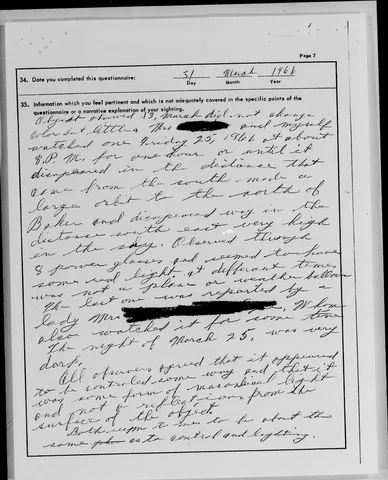 Page 7
34. Date you completed this questionnaire: 31 March 1966
Day Month Year
35. Information which you feel pertinent and which is not adequately covered in the specific points of the
questionnaire or a narrative explanation of your sighting.
Object observed 13, March did not change
color but little. Mrs and myself
watched one Friday 25, 1966 at about
8. P.M. for one hour or until it
disapeared in the distance that
came from the south made a
large orbit to the north of
Baker and disapeared way in the
distance south east very high
in the sky. Observed through
8 power glasses and seemed to have
some red light at different times
was not a plane or weather balloon
The last one was reported by a
lady Mrs Whom
also watched it for some time
The night of March 25, was very
dark.
All observers agreed that it appeared
to be controled some way and that it
was some form of light
and not a reflection from the
surface of the object.
Both seem to me to be about the
same as to control and lighting.